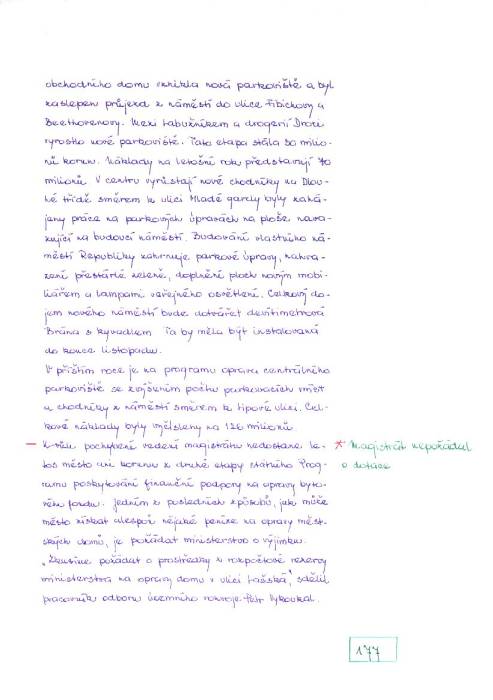 obchodního domu vznikla nová parkoviště a byl
zaslepen průjezd z náměstí do ulice Fibichovy a
Beethovenovy. Mezi Labužníkem a drogerií Droxi
vyrostlo nové parkoviště. Tato etapa stála 30 milio-
nů korun. Náklady na letošní rok představují 70
milionů. V centru vyrůstají nové chodníky na Dlou-
hé třídě směrem k ulici Mladé gardy byly zahá-
jeny práce na parkových úpravách na ploše nava-
zující na budoucí náměstí. Budování vlastního ná-
městí Republiky zahrnuje parkové úpravy, nahra-
zení přestárlé zeleně, doplnění ploch novým mobi-
liářem a lampami veřejného osvětlení. Celkový do-
jem nového náměstí bude dotvářet devítimetrová
Brána s kyvadlem. Ta by měla být instalovaná
do konce listopadu.
V příštím roce je na programu oprava centrálního
parkoviště se zvýšením počtu parkovacích míst
a chodníky z náměstí směrem k Lipové ulici. Cel-
kové náklady byly vyčísleny na 126 milionů.
Kvůli pochybení vedení magistrátu nedostane le-
tos město ani korunu z druhé etapy státního Prog-
ramu poskytování finanční podpory na opravy byto-
vého fondu. Jedním z posledních způsobů, jak může
město získat alespoň nějaké peníze na opravy měst-
ských domů, je požádat ministerstvo o výjimku.
„Zkusíme požádat o prostředky z rozpočtové rezervy
ministerstva na opravy domu v ulici Lašská," sdělil
pracovník odboru územního rozvoje Petr Vykoukal.
* Magistrát nepožádal
o dotace
177